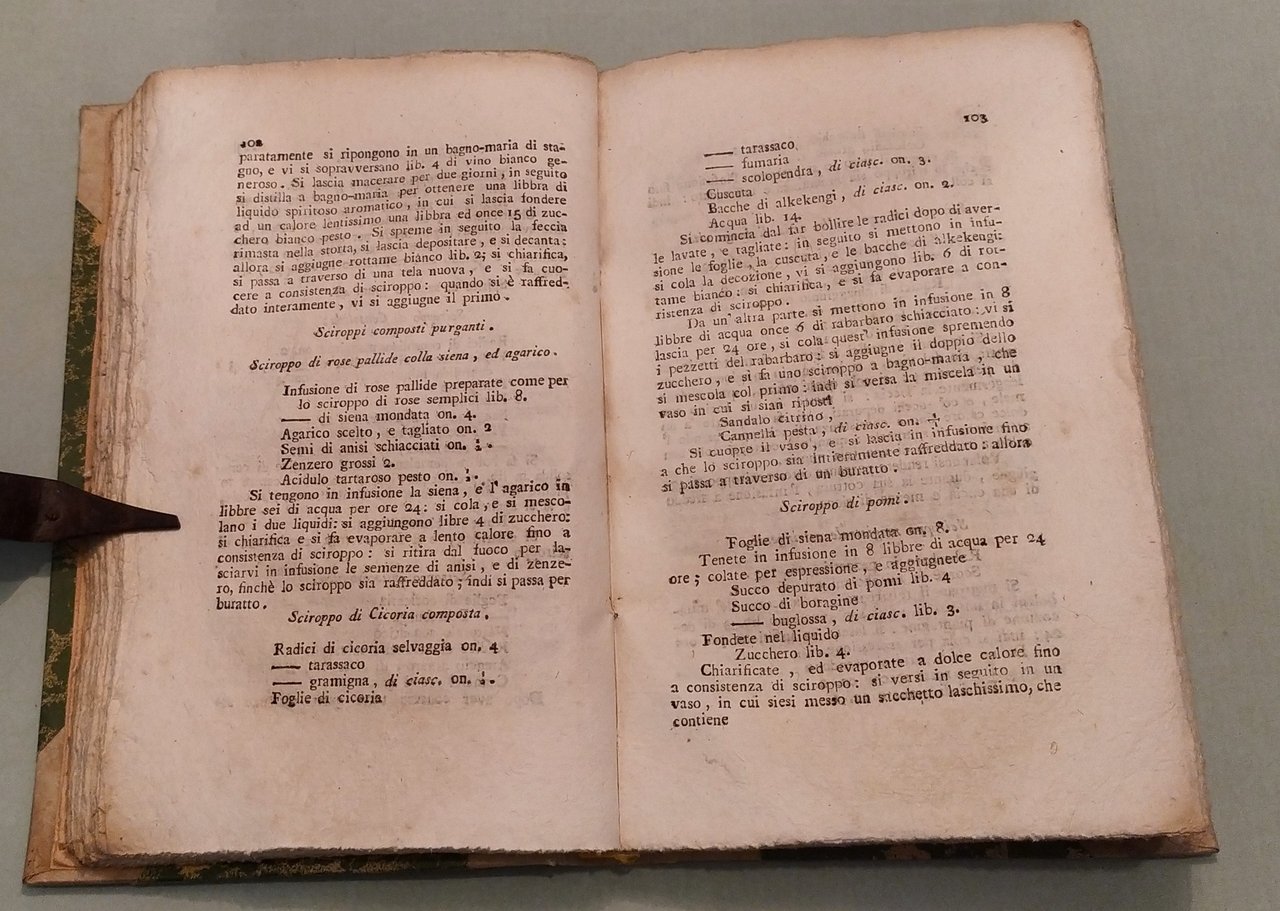 102
paratamente si ripongono in un bagno-maria di sta-
gno, e vi si sopravversano lib. 4 di vino bianco ge-
neroso. Si lascia macerare per due giorni, in seguito
si distilla a bagno-maria per ottenere una libbra di
liquido spiritoso aromatico, in cui si lascia fondere
ad un calore lentissimo una libbra ed once 15 di zuc-
chero bianco pesto. Si spreme in seguito la feccia
rimasta nella storta, si lascia depositare, e si decanta:
allora si aggiugne rottame bianco lib. 2; si chiarifica,
si passa a traverso di una tela nuova, e si fa cuo-
cere a consistenza di sciroppo: quando si è raffred-
dato interamente, vi si aggiugne il primo.
Sciroppi composti purganti.
Sciroppo di rose pallide colla siena, ed agarico.
Infusione di rose pallide preparate come per
lo sciroppo di rose semplici lib. 8.
—— di siena mondata on. 4.
Agarico scelto, e tagliato on. 2
Semi di anisi schiacciati on. ½.
Zenzero grossi 2.
Acidulo tartaroso pesto on. ½.
Si tengono in infusione la siena, e l'agarico in
libbre sei di acqua per ore 24: si cola, e si mesco-
lano i due liquidi: si aggiungono libre 4 di zucchero:
si chiarifica e si fa evaporare a lento calore fino a
consistenza di sciroppo: si ritira dal fuoco per la-
sciarvi in infusione le semenze di anisi, e di zenze-
ro, finchè lo sciroppo sia raffreddato; indi si passa per
buratto.
Sciroppo di Cicoria composta.
Radici di cicoria selvaggia on. 4
—— tarassaco
—— gramigna, di ciasc. on. ½.
Foglie di cicoria
103
—— tarassaco
—— fumaria
—— scolopendra, di ciasc. on. 3.
Cuscuta
Bacche di alkekengi, di ciasc. on. 2.
Acqua lib. 14.
Si comincia dal far bollire le radici dopo di aver-
le lavate, e tagliate: in seguito si mettono in infu-
sione le foglie, la cuscuta, e le bacche di alkekengi:
si cola la decozione, vi si aggiungono lib. 6 di rot-
tame bianco: si chiarifica, e si fa evaporare a con-
ristenza di sciroppo.
Da un'altra parte si mettono in infusione in 8
libbre di acqua once 6 di rabarbaro schiacciato: vi si
lascia per 24 ore, si cola quest' infusione spremendo
i pezzetti del rabarbaro: si aggiugne il doppio dello
zucchero, e si fa uno sciroppo a bagno-maria, che
si mescola col primo: indi si versa la miscela in un
vaso in cui si sian riposti
Sandalo citrino,
Cannella pesta, di ciasc. on.
Si cuopre il vaso, e si lascia in infusione fino
a che lo sciroppo sia intieramente raffreddato: allora
si passa a traverso di un buratto.
Sciroppo di pomi.
Foglie di siena mondata on. 8.
Tenete in infusione in 8 libbre di acqua per 24
ore; colate per espressione, e aggiugnete
Succo depurato di pomi lib. 4
Succo di boragine
—— buglossa, di ciasc. lib. 3.
Fondete nel liquido
Zucchero lib. 4.
Chiarificate, ed evaporate a dolce calore fino
a consistenza di sciroppo: si versi in seguito in un
vaso, in cui siesi messo un sacchetto laschissimo, che
contiene